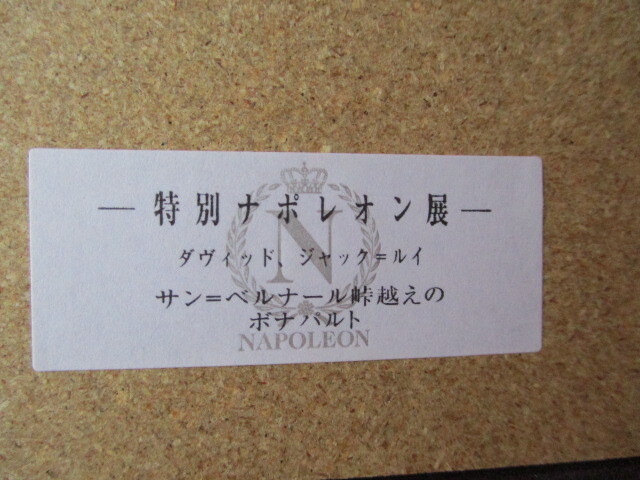 ― 特別ナポレオン展 ―
ダヴィッド、ジャック=ルイ
サン=ベルナール峠越えの
ボナパルト
N
NAPOLEON